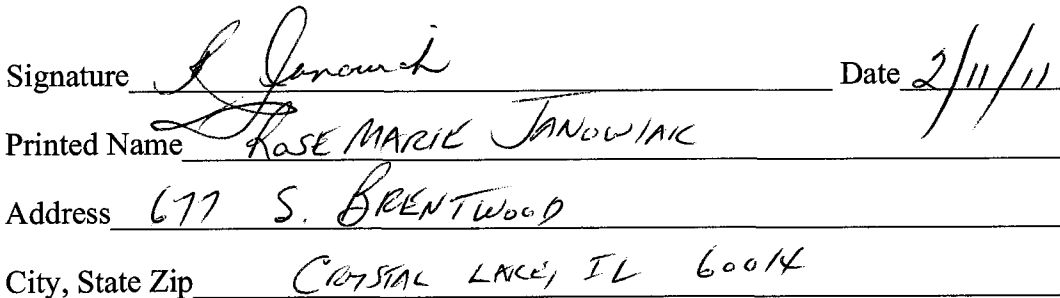 Signature R Janowiak Date 2/11/11
Printed Name ROSE MARIE JANOWIAK
Address 677 S. BRENTWOOD
City, State Zip CRYSTAL LAKE, IL 60014